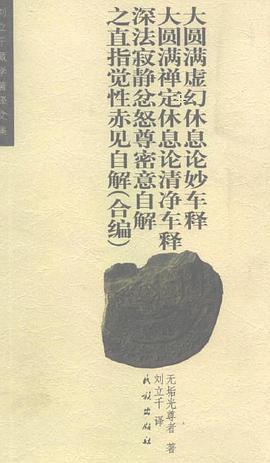 大圆满虚幻休息论妙车释
大圆满禅定休息论清净车释
深法寂静忿怒尊密意自解
之直指觉性赤见自解(合编)
刘立千藏学著译文集
无垢光尊者 著
刘立千 译
民族出版社